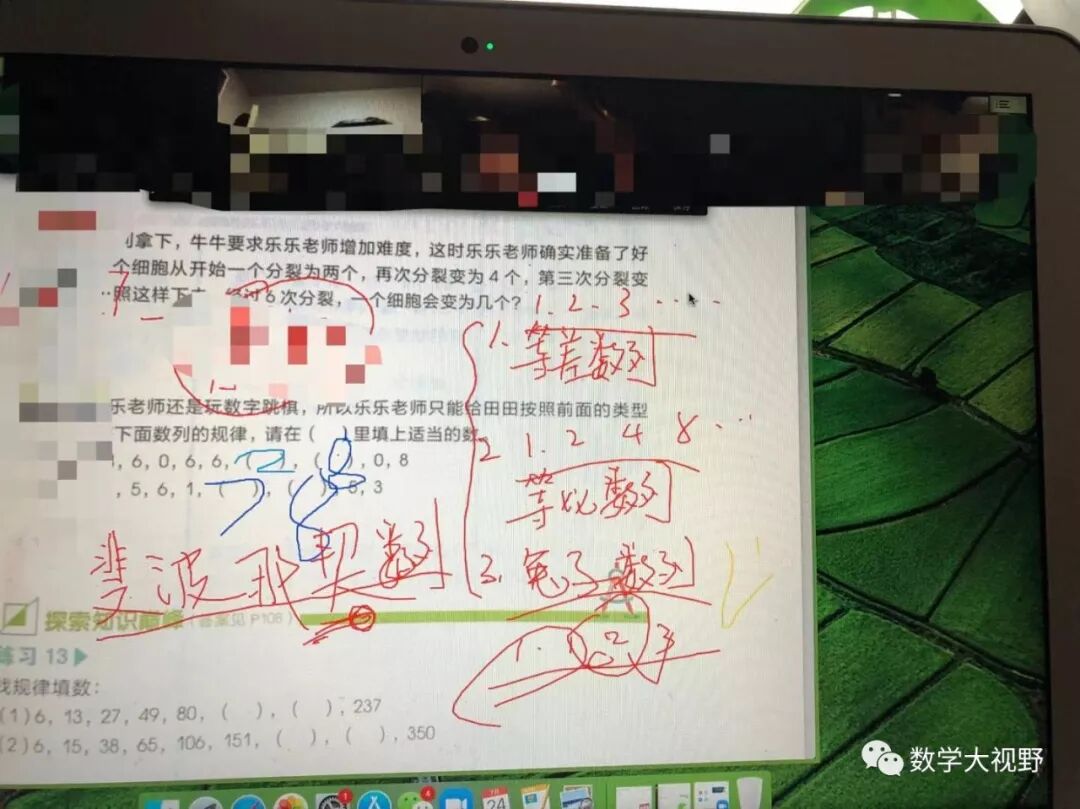 拿下，牛牛要求乐乐老师增加难度，这时乐乐老师确实准备了好
个细胞从开始一个分裂为两个，再次分裂变为4个，第三次分裂变
照这样下 过6次分裂，一个细胞会变为几个？
1. 2. 3 ……
1. 等差数列
乐老师还是玩数字跳棋，所以乐乐老师只能给田田按照前面的类型
下面数列的规律，请在（ ）里填上适当的数
2 1. 2 4 8 …
, 6, 0, 6, 6, ( ), ( ), 0, 8
等比数列
, 5, 6, 1, ( ), ( ), 8, 3
斐波那契数列
3. 兔子数列
探索知识巅峰（答案见P108）
1. 1 2 3
练习 13
找规律填数：
(1) 6, 13, 27, 49, 80, ( ), ( ), 237
(2) 6, 15, 38, 65, 106, 151, ( ), ( ), 350
24
数学大视野